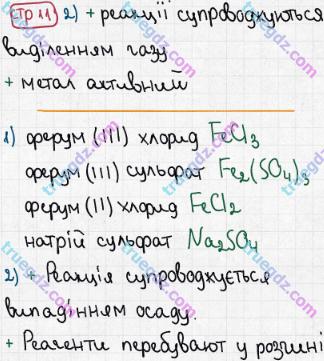 стр 11 2) + реакції супроводжуються
виділенням газу
+ метал активний
1) ферум (III) хлорид FeCl₃
ферум (III) сульфат Fe₂(SO₄)₃
ферум (II) хлорид FeCl₂
натрій сульфат Na₂SO₄
2) + Реакція супроводжується
випадінням осаду.
+ Реагенти перебувають у розчині